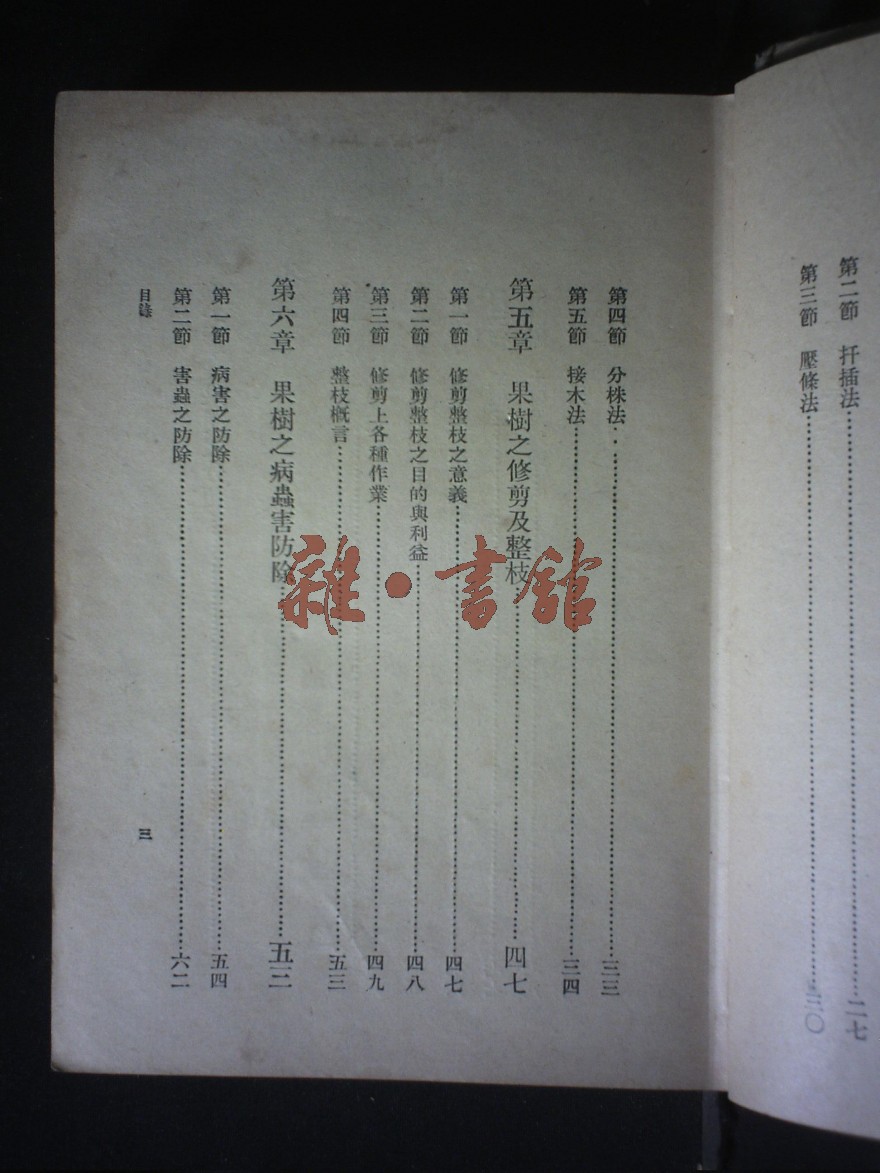 第二節 扦插法 二七
第三節 壓條法 三〇
第四節 分株法 三三
第五節 接木法 三四
第五章 果樹之修剪及整枝 四七
第一節 修剪整枝之意義 四七
第二節 修剪整枝之目的與利益 四八
第三節 修剪上各種作業 四九
第四節 整枝概言 五三
第六章 果樹之病蟲害防除 五三
第一節 病害之防除 五四
第二節 害蟲之防除 六二
目錄 三
雜·書館